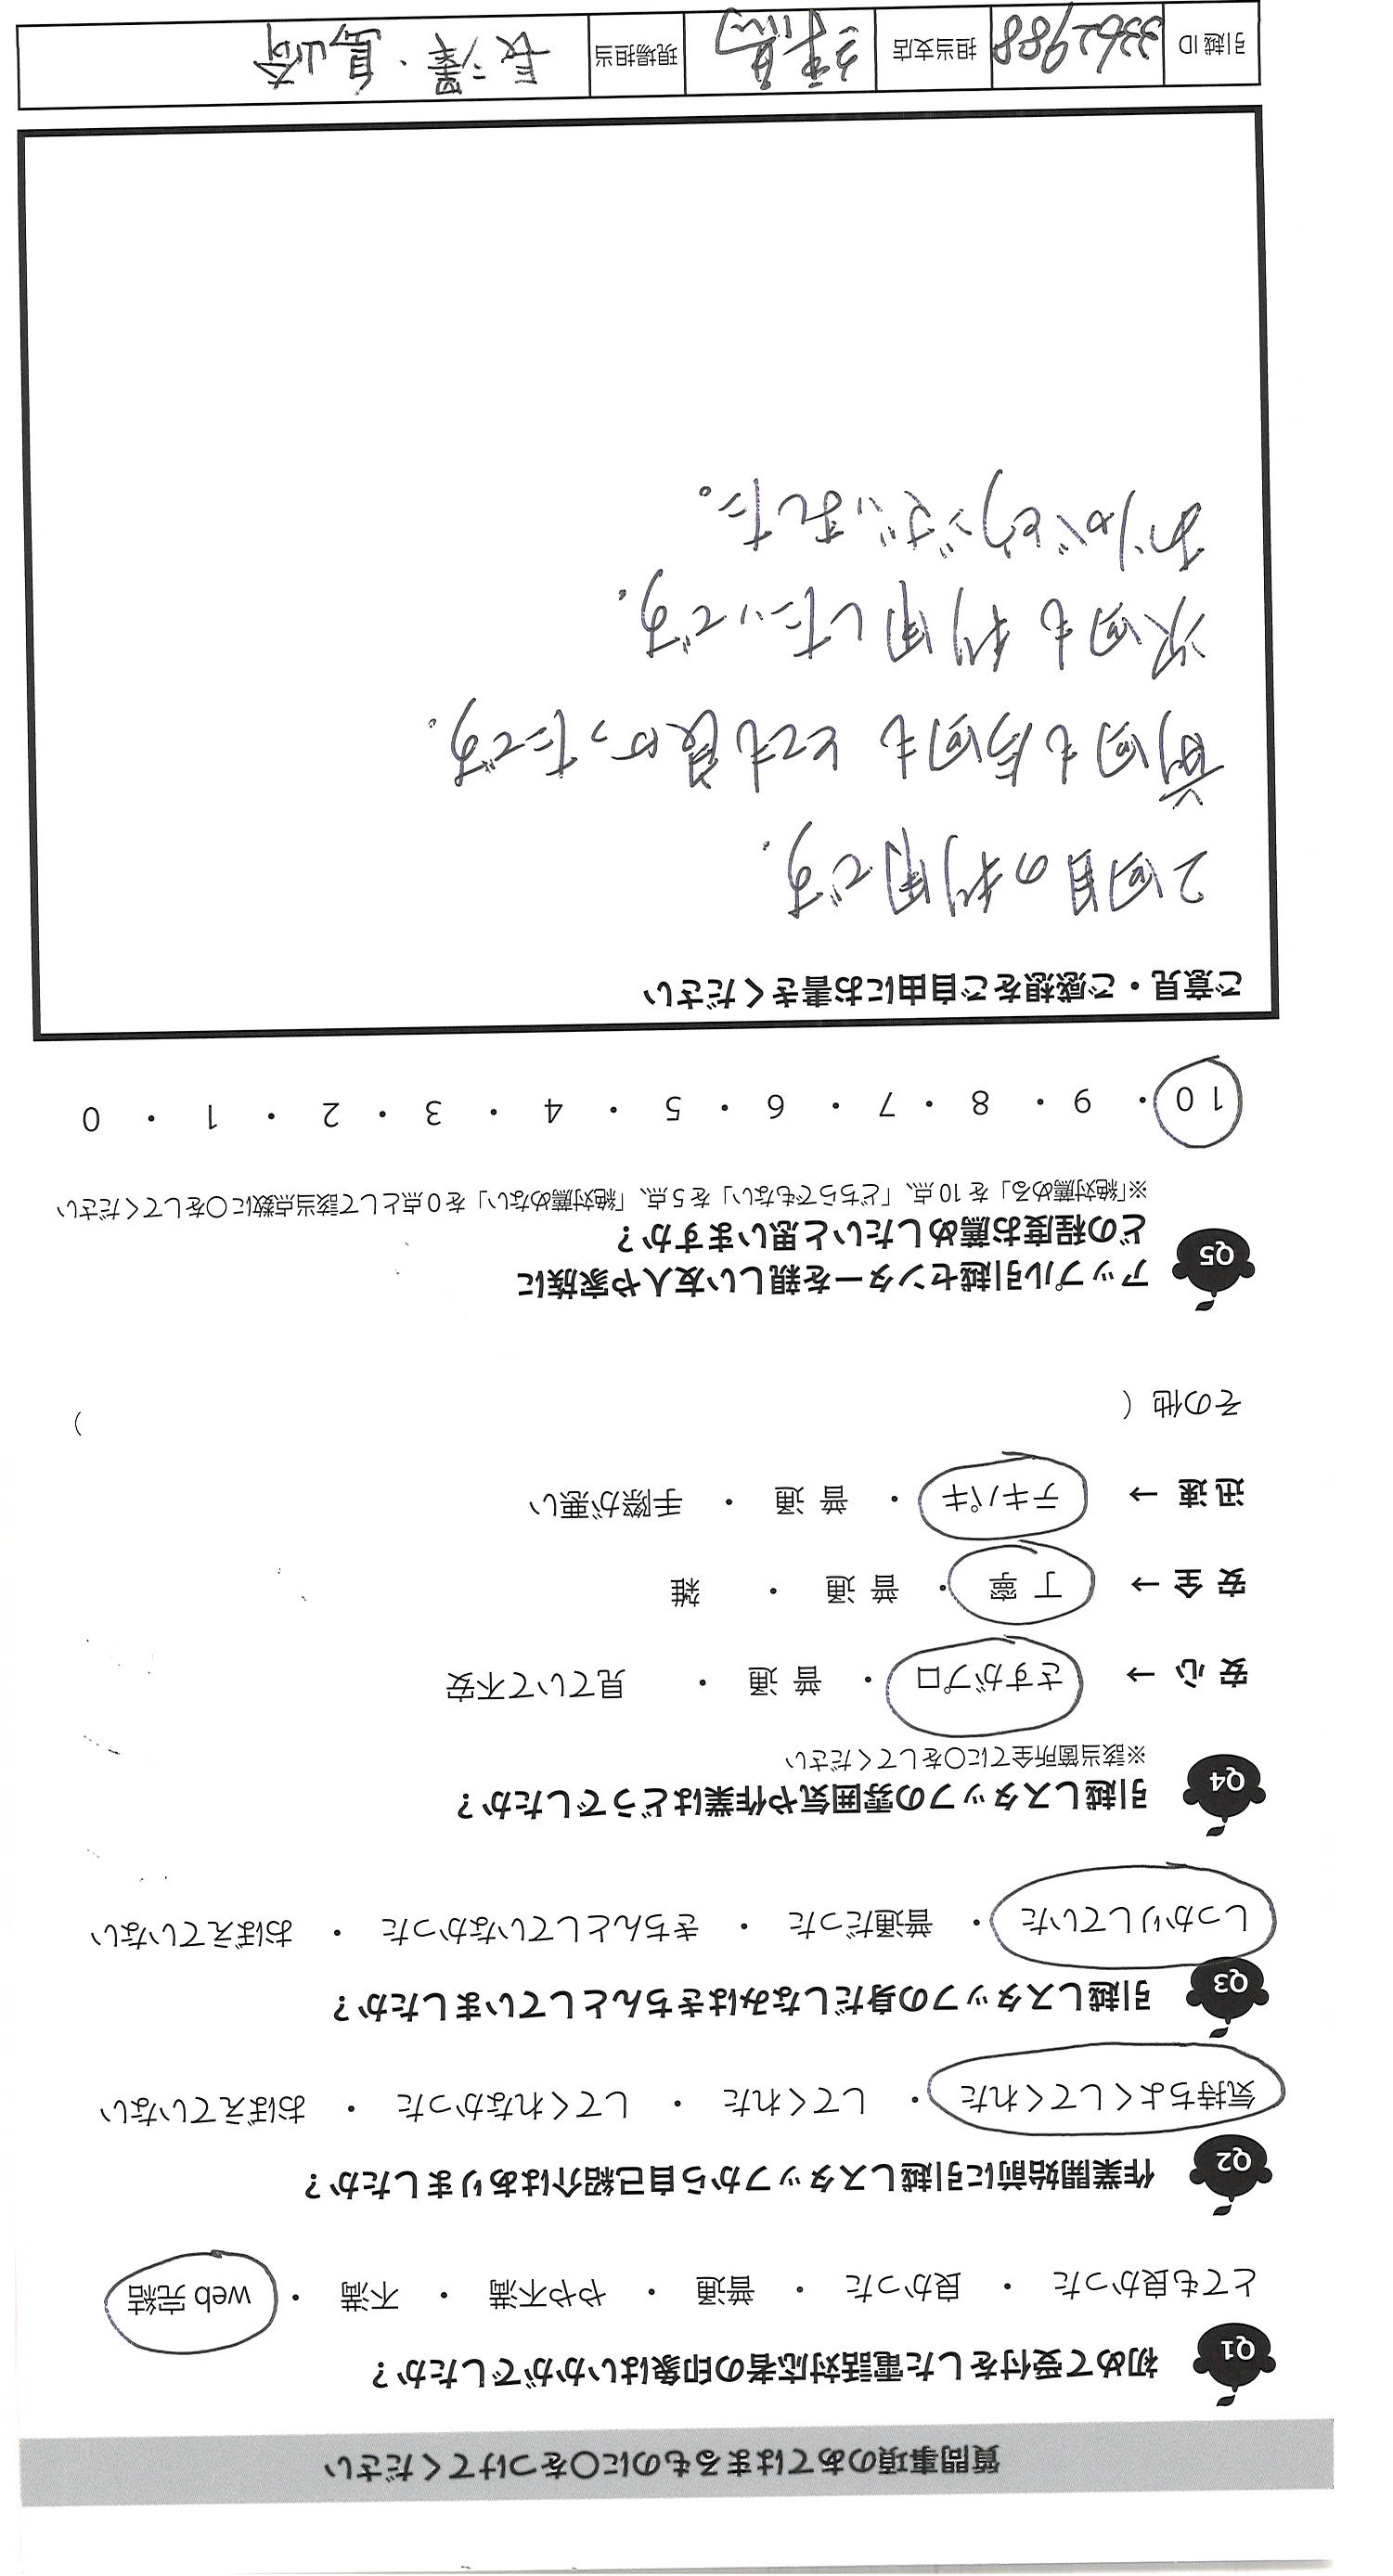 質問事項のあてはまるものに〇をつけてください
Q1 初めて受付をした電話対応者の印象はいかがでしたか？
とても良かった ・ 良かった ・ 普通 ・ やや不満 ・ 不満 ・ web 完結
Q2 作業開始前に引越しスタッフから自己紹介はありましたか？
気持ちよくしてくれた ・ してくれた ・ してくれなかった ・ おぼえていない
Q3 引越しスタッフの身だしなみはきちんとしていましたか？
しっかりしていた ・ 普通だった ・ きちんとしていなかった ・ おぼえていない
Q4 引越しスタッフの雰囲気や作業はどうでしたか？
※該当箇所全てに〇をしてください
安心 → さすがプロ ・ 普通 ・ 見ていて不安
安全 → 丁寧 ・ 普通 ・ 雑
迅速 → テキパキ ・ 普通 ・ 手際が悪い
その他（ ）
Q5 アップル引越センターを親しい友人や家族に
どの程度お薦めしたいと思いますか？
※「絶対薦める」を10点、「どちらでもない」を5点、「絶対薦めない」を0点として該当点数に〇をしてください
10 ・ 9 ・ 8 ・ 7 ・ 6 ・ 5 ・ 4 ・ 3 ・ 2 ・ 1 ・ 0
ご意見・ご感想をご自由にお書きください
2回目の利用です。
前回も今回もとても良かったです。
次回も利用したいです。
ありがとうございました。
引越ID 3362988 担当支店 練馬 現場担当 長澤・島崎